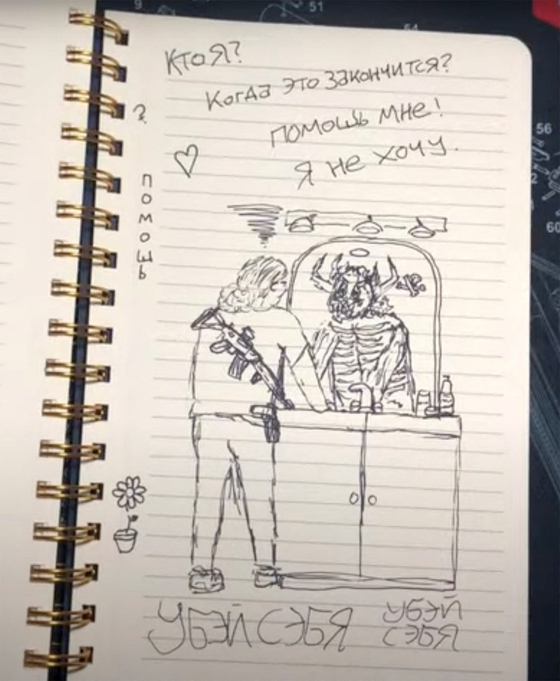 9
51
54
56
2
60
Кто я?
Когда это закончится?
помошь мне!
я не хочу.
?
помошь
УБЭЙ СЭБЯ
УБЭЙ
СЭБЯ